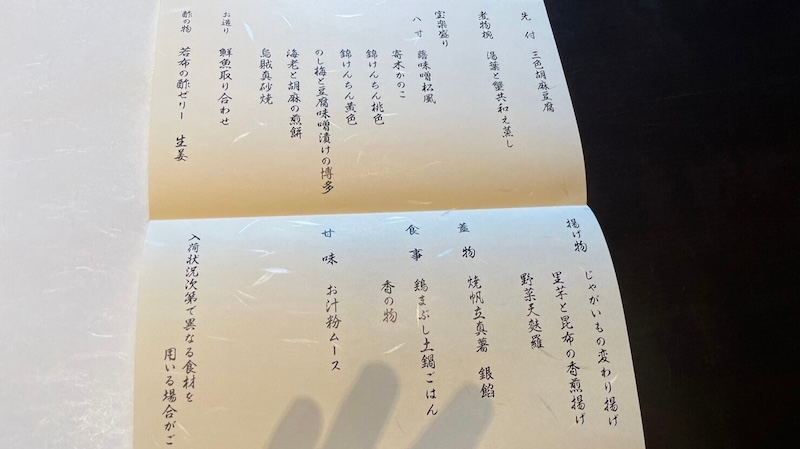 先付 三色胡麻豆腐
煮物椀 湯葉と蟹共和え蒸し
宝楽盛り
八寸 蕗味噌松風
寄木かのこ
錦けんちん桃色
錦けんちん黄色
のし梅と豆腐味噌漬けの博多
海老と胡麻の煎餅
烏賊真砂焼
お造り 鮮魚取り合わせ
酢の物 若布の酢ゼリー 生姜
揚げ物 じゃがいもの変わり揚げ
里芋と昆布の香煎揚げ
野菜天麩羅
蓋物 焼帆立真薯 銀餡
食事 鶏まぶし土鍋ごはん
香の物
甘味 お汁粉ムース
入荷状況次第で異なる食材を
用いる場合がご